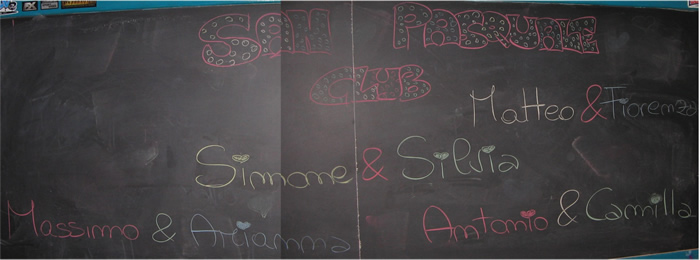 San Pasquale
Club
Matteo & Fiorenza
Simone & Silvia
Massimo & Arianna
Antonio & Camilla